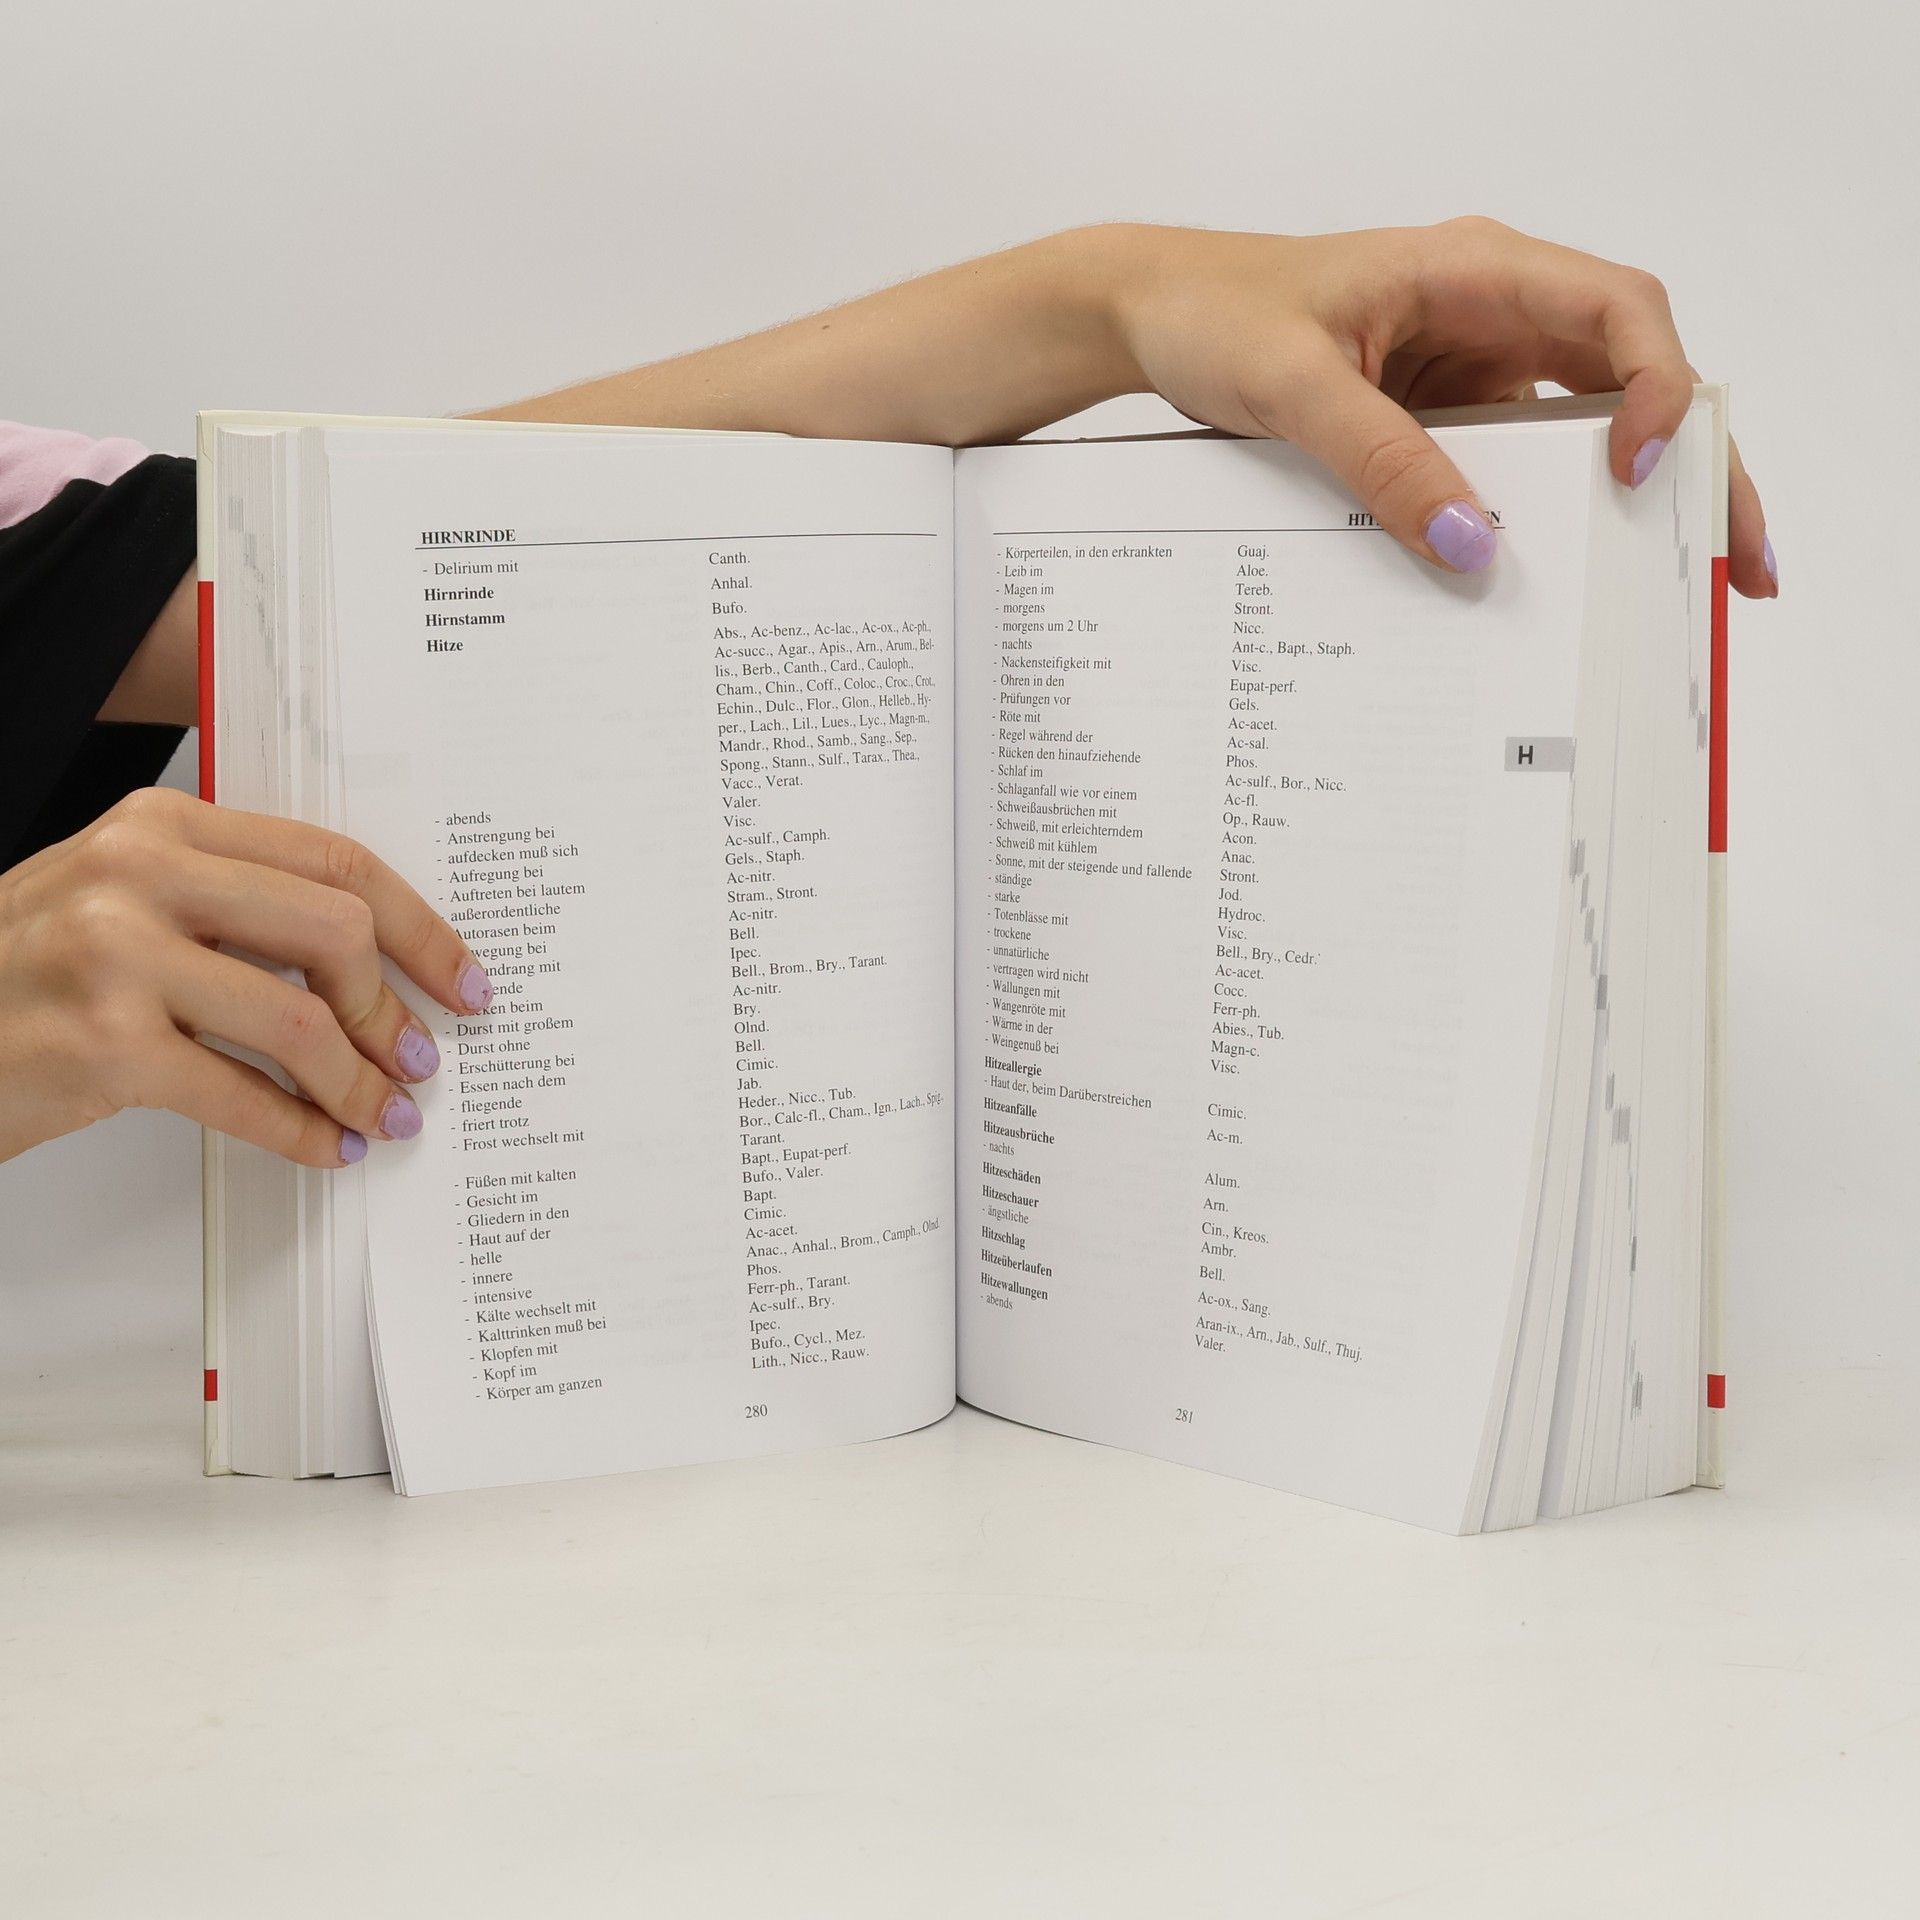 HIRNRINDE
- Delirium mit Canth.
Hirnrinde Anhal.
Hirnstamm Bufo.
Hitze Abs., Ac-benz., Ac-lac., Ac-ox., Ac-ph.,
Ac-succ., Agar., Apis., Arn., Arum., Bel-
lis., Berb., Canth., Card., Cauloph.,
Cham., Chin., Coff., Coloc., Croc., Crot.,
Echin., Dulc., Flor., Glon., Helleb., Hy-
per., Lach., Lil., Lues., Lyc., Magn-m.,
Mandr., Rhod., Samb., Sang., Sep.,
Spong., Stann., Sulf., Tarax., Thea.,
Vacc., Verat.
- abends Valer.
- Anstrengung bei Visc.
- aufdecken muß sich Ac-sulf., Camph.
- Aufregung bei Gels., Staph.
- Auftreten bei lautem Ac-nitr.
- außerordentliche Stram., Stront.
Autorasen beim Ac-nitr.
wegung bei Bell.
andrang mit Ipec.
ende Bell., Brom., Bry., Tarant.
cken beim Ac-nitr.
- Durst mit großem Bry.
- Durst ohne Olnd.
- Erschütterung bei Bell.
- Essen nach dem Cimic.
- fliegende Jab.
- friert trotz Heder., Nicc., Tub.
- Frost wechselt mit Bor., Calc-fl., Cham., Ign., Lach., Spig.,
Tarant.
- Füßen mit kalten Bapt., Eupat-perf.
- Gesicht im Bufo., Valer.
- Gliedern in den Bapt.
- Haut auf der Cimic.
- helle Ac-acet.
- innere Anac., Anhal., Brom., Camph., Olnd.
- intensive Phos.
- Kälte wechselt mit Ferr-ph., Tarant.
- Kalttrinken muß bei Ac-sulf., Bry.
- Klopfen mit Ipec.
- Kopf im Bufo., Cycl., Mez.
- Körper am ganzen Lith., Nicc., Rauw.
280
HIT EN
- Körperteilen, in den erkrankten Guaj.
- Leib im Aloe.
- Magen im Tereb.
- morgens Stront.
- morgens um 2 Uhr Nicc.
- nachts Ant-c., Bapt., Staph.
- Nackensteifigkeit mit Visc.
- Ohren in den Eupat-perf.
- Prüfungen vor Gels.
- Röte mit Ac-acet.
- Regel während der Ac-sal.
- Rücken den hinaufziehende Phos.
- Schlaf im Ac-sulf., Bor., Nicc.
- Schlaganfall wie vor einem Ac-fl.
- Schweißausbrüchen mit Op., Rauw.
- Schweiß, mit erleichterndem Acon.
- Schweiß mit kühlem Anac.
- Sonne, mit der steigende und fallende Stront.
- ständige Jod.
- starke Hydroc.
- Totenblässe mit Visc.
- trockene Bell., Bry., Cedr.
- unnatürliche Ac-acet.
- vertragen wird nicht Cocc.
- Wallungen mit Ferr-ph.
- Wangenröte mit Abies., Tub.
- Wärme in der Magn-c.
- Weingenuß bei Visc.
Hitzeallergie
- Haut der, beim Darüberstreichen Cimic.
Hitzeanfälle Ac-m.
Hitzeausbrüche
- nachts Alum.
Hitzeschäden Arn.
Hitzeschauer Cin., Kreos.
- ängstliche Ambr.
Hitzschlag Bell.
Hitzeüberlaufen Ac-ox., Sang.
Hitzewallungen Aran-ix., Arn., Jab., Sulf., Thuj.
- abends Valer.
281
H